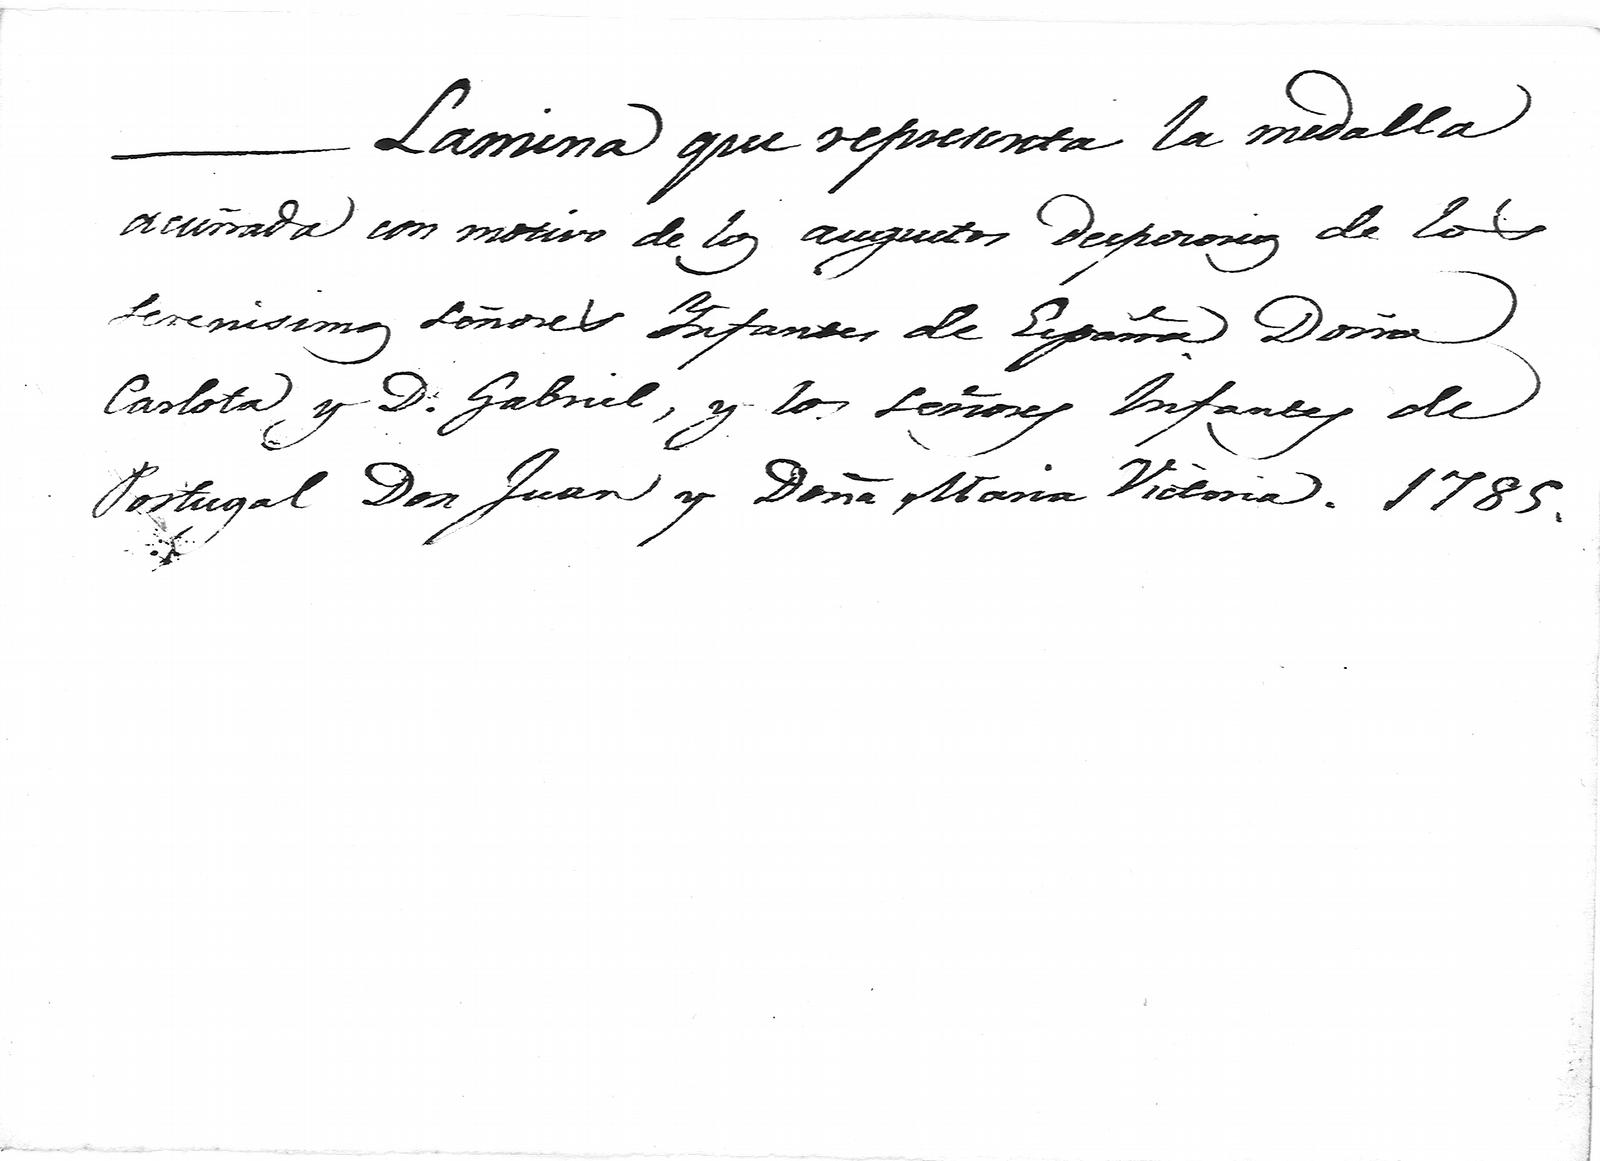 Lamina que representa la medalla
acuñada con motivo de los augustos desposorios de los
serenisimos señores Infantes de España Doña
Carlota y D. Gabriel, y los señores Infantes de
Portugal Don Juan y Doña Maria Victoria. 1785.